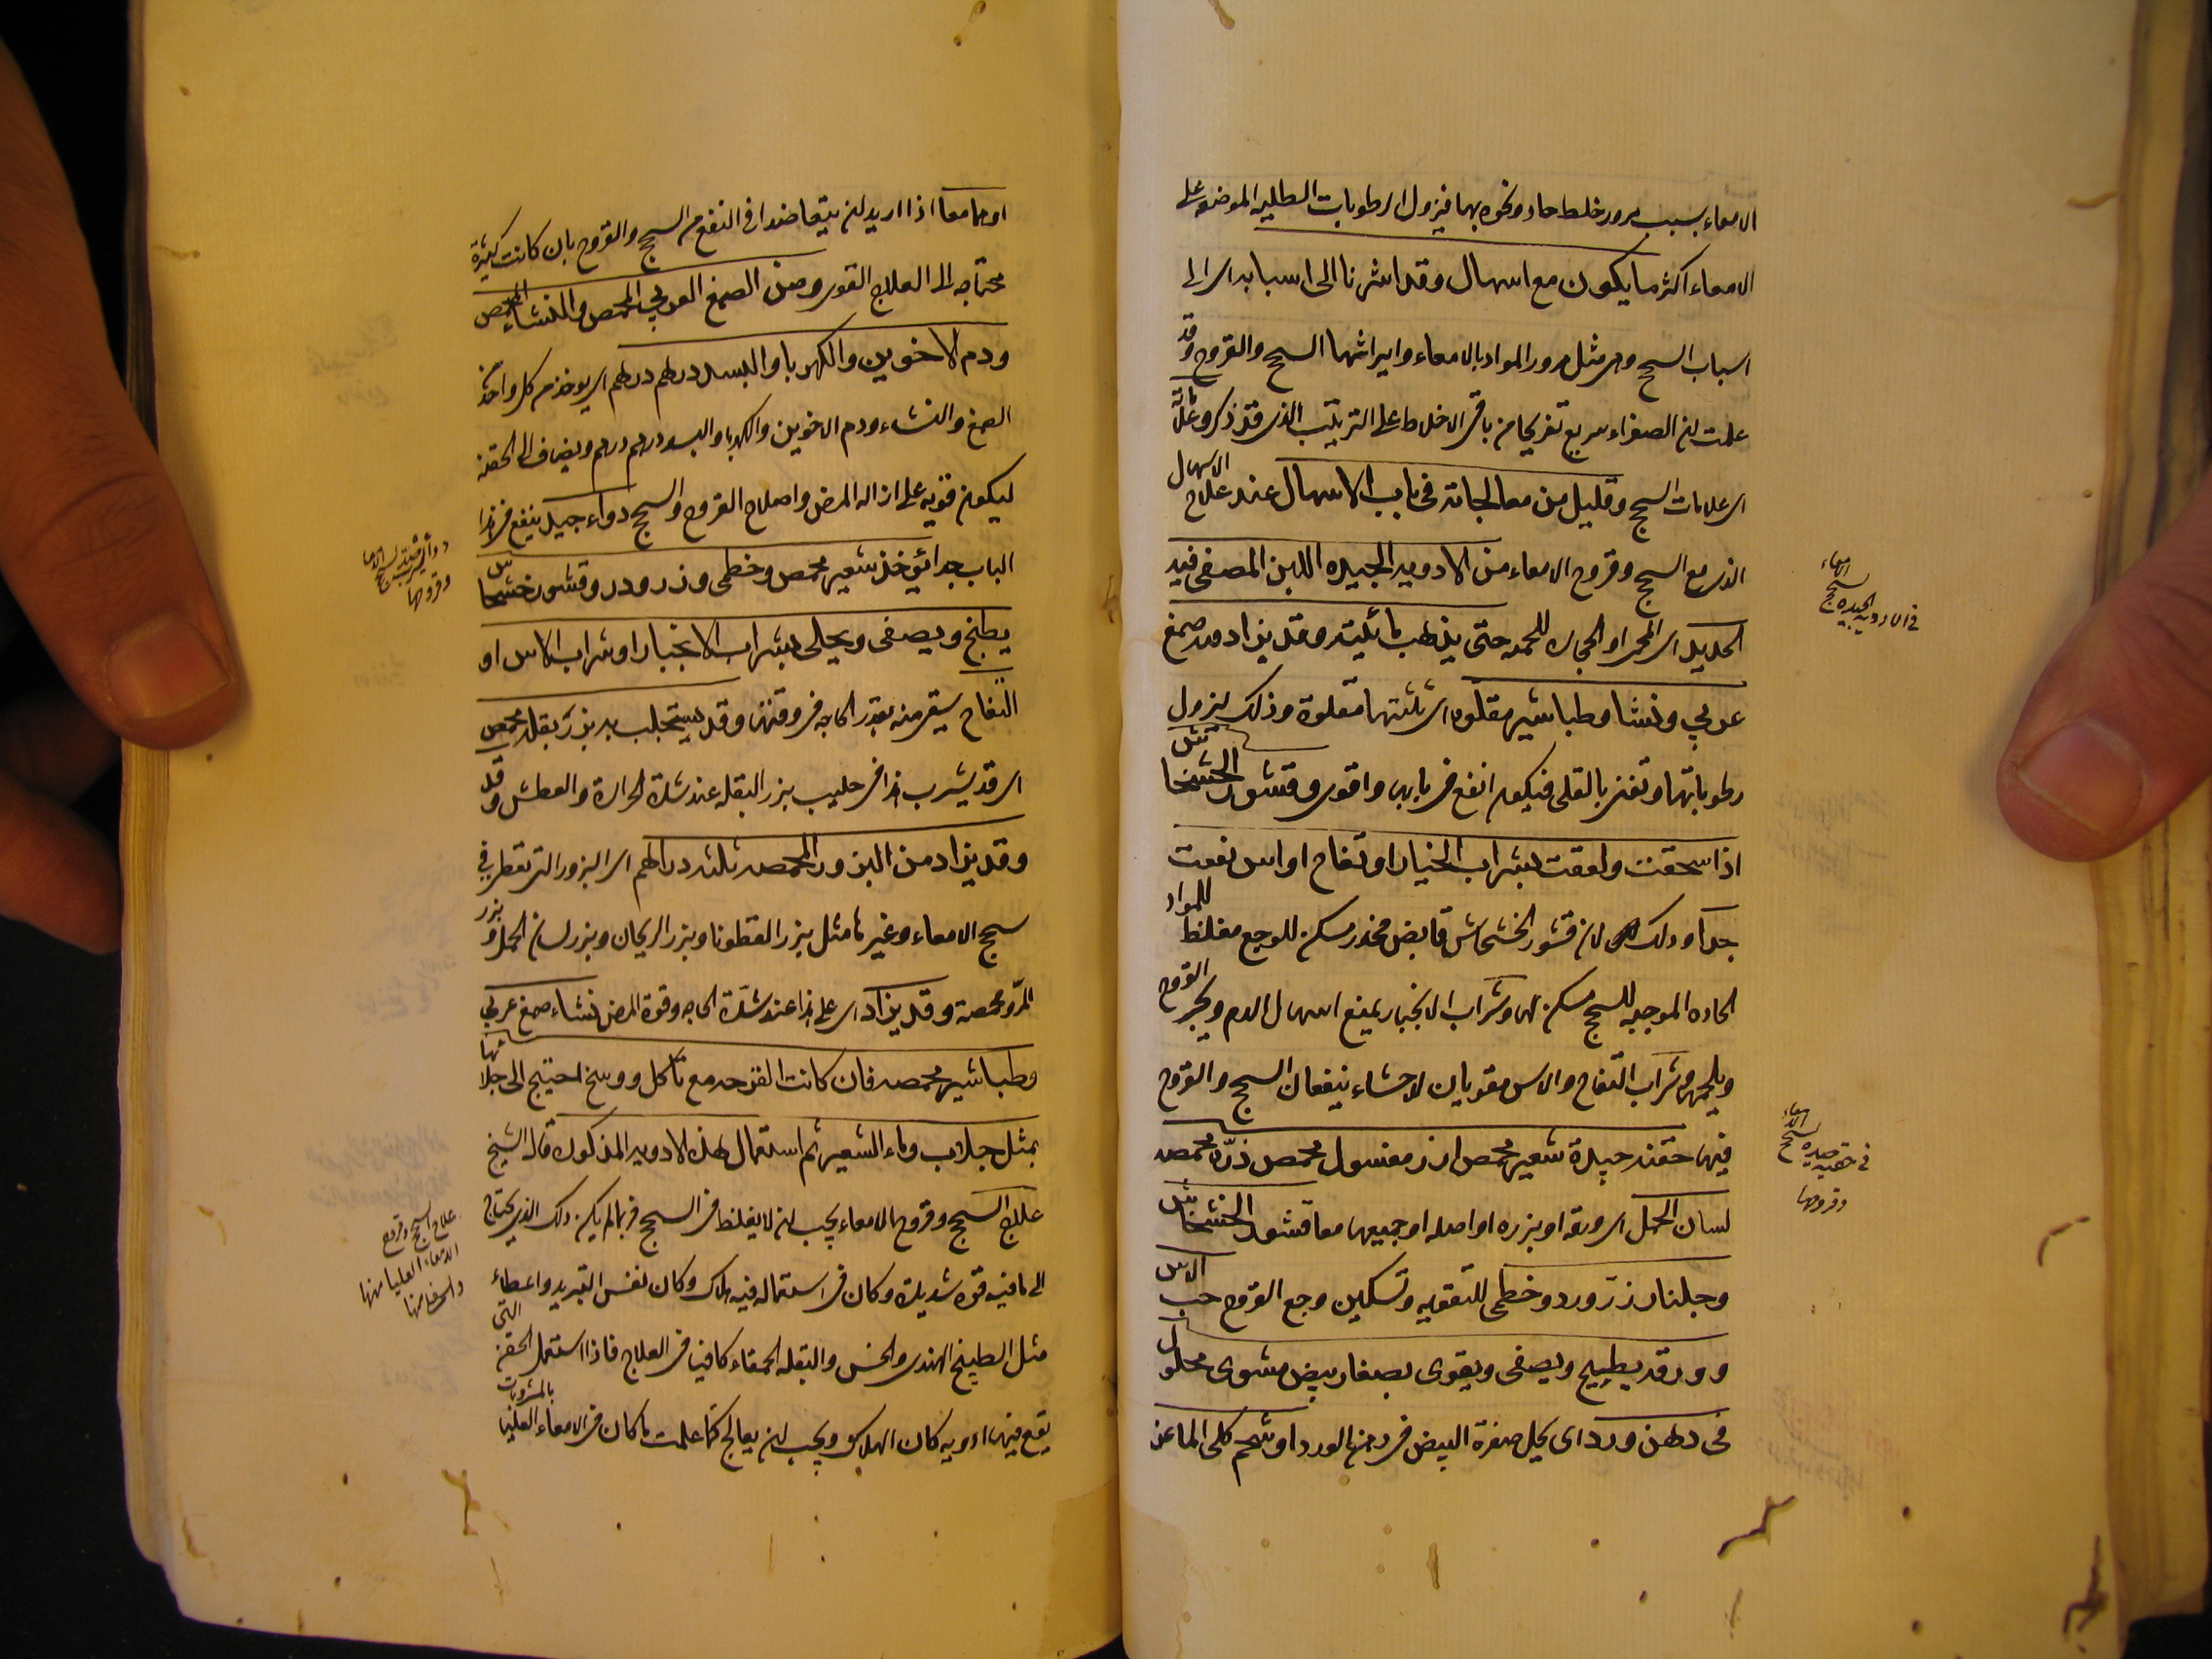 الامعاء بسبب مرور خلط حاد ونحوه بهما فيزول الرطوبات الطلية الموضوع على
الامعاء اكثر ما يكون مع اسهال وقد اشرنا الى اسبابه اى الى
اسباب السحج وهى مثل مرور المواد بالامعاء وايراثها السحج والقروح وقد
علمت ان الصفراء سريع تقريحا من باقى الاخلاط على الترتيب الذى قد ذكر وعلاماته
اى علامات السحج وقليل من معالجاته فى باب الاسهال عند علاج الاسهال
الذى مع السحج وقروح الامعاء من الادويه الجيده اللبن المصفى فيه
الحديد اى المحمى او الحجاره المحمه حتى يذهب مائيته وقد يزاد فيه صمغ
عربي ونشا وطباشير مقلوه اى ثلثتها مقلوة وذلك ليزول
رطوباتها وتفنى بالقلى فيكون انفع فى بابه واقوى وقشور الخشخاش
اذا سحقت ولعقت بشراب الخيار او تفاح او اس نفعت
جدا وذلك لان قشور الخشخاش قابض مخدر مسكن للوجع مغلظ للمواد
الحاده الموجبه للسحج مسكن لها وشراب الانجبار يمنع اسهال الدم ويجبر القروح
ويلحمها وشراب التفاح والاس مقويان للاحشاء ينفعان السحج والقروح
فيها حقنه جيدة شعير محمص ارز مغسول محمص ذرة محمصه
لسان الحمل اى ورقه او بزره او اصله او جميعها معا قشور الخشخاش
وجلنار زر ورد وخطمى للتقويه وتسكين وجع القروح حب الاس
وورقه يطبخ ويصفى ويقوى بصفار بيض مشوى محلول
فى دهن ورد اى يحل صفرة البيض فى دهن الورد او شحم كلى الماعز
فى الادويه الجيده لسحج الامعاء
فى حقنه جيده لسحج الامعاء
وقروحها
اوهما معا اذا اريد ان يتعاضدا فى النفع من السحج والقروح بان كانت كثيرة
محتاجه الى العلاج القوى ومن الصمغ العربي المحمص والنشاء المحمص
ودم الاخوين والكهربا والبسد درهم درهم اى يوخذ من كل واحد من
الصمغ والنشاء ودم الاخوين والكهربا والبسد درهم درهم ويضاف الى الحقنه
ليكون قويه على ازاله المرض واصلاح القروح والسحج دواء جميل ينفع فى هذا
الباب جدا يؤخذ شعير محمص وخطمى وزر ورد وقشور خشخاش
يطبخ ويصفى ويحلى بشراب الانجبار او شراب الاس او
التفاح يسقى منه بقدر الحاجه فى وقتها وقد يستحلب به بزر بقله محمص
اى قد يشرب هذا فى حليب بزر البقله عند شدة الحرارة والعطش وقد
وقد يزاد من البزور المحمصه ثلثه دراهم اى البزور التى تقطر فى
سحج الامعاء وغيرها مثل بزر القطونا وبزر الريحان وبزر لسان الحمل وبزر
المرو محمصة وقد يزاد اى على هذا عند شدة الحاجه وقوة المرض نشاء صمغ عربي
وطباشير محمصه فان كانت القرحه مع تأكل ووسخ احتيج الى جلائها
بمثل جلاب وماء الشعير ثم استعمال هذه الادويه المذكوره قال الشيخ
علاج السحج وقروح الامعاء يجب ان لا يغلظ فى السحج فربما لم يكن ذلك الذى يحتاج
الى ما فيه قوة شديدة وكان فى استعماله فيه هلاك وكان نفس التبريد واعطاء
مثل البطيخ الهندى والخس والبقله الحمقاء كافيا فى العلاج فاذا استعمل الحقن التى
يقع فيها ادويه كان الهلاك ويجب ان يعالج كما علمت ما كان فى الامعاء العليا بالمشروبات
وقروحها
علاج السحج وقروح
الامعاء العليا منها